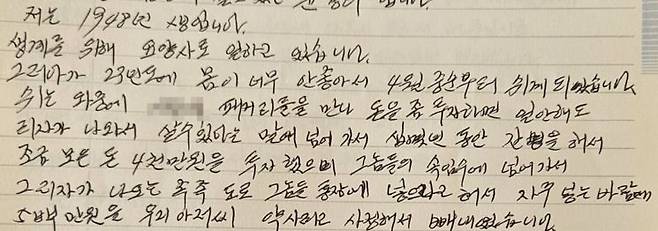 저는 1948년 생입니다.
생계를 위해 요양사로 일하고 있습니다.
그러다가 23년도에 몸이 너무 안좋아서 4월 중순부터 쉬게 되었습니다.
쉬는 와중에 패거리들을 만나 돈을 좀 투자하면 일 안해도
이자가 나와서 살수있다는 말에 넘어 가서 십몇년 동안 간병을 해서
조금 모은 돈 4천만원을 투자 했으며 그놈들의 속임수에 넘어가서
그 이자가 나오는 족족 도로 그놈들 통장에 넣으라고 해서 자꾸 넣는 바람에
5백 만원을 우리 아저씨 약사려고 사정해서 빼내었습니다.